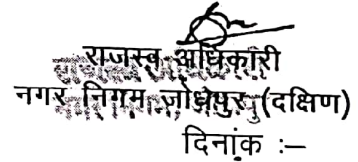 राजस्व अधिकारी
नगर निगम जोधपुर (दक्षिण)
दिनांक :–